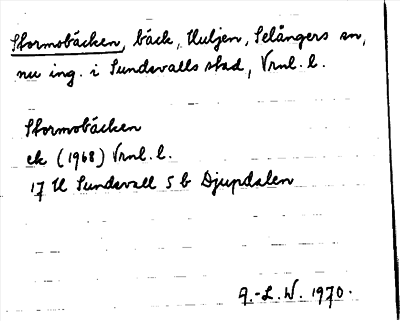 Stormobäcken, bäck, Huljen, Selångers sn,
nu ing. i Sundsvalls stad, Vrnl. l.
Stormobäcken
ek (1968) Vrnl. l.
17 H Sundsvall 5 b Djupdalen
G.-L. W. 1970.